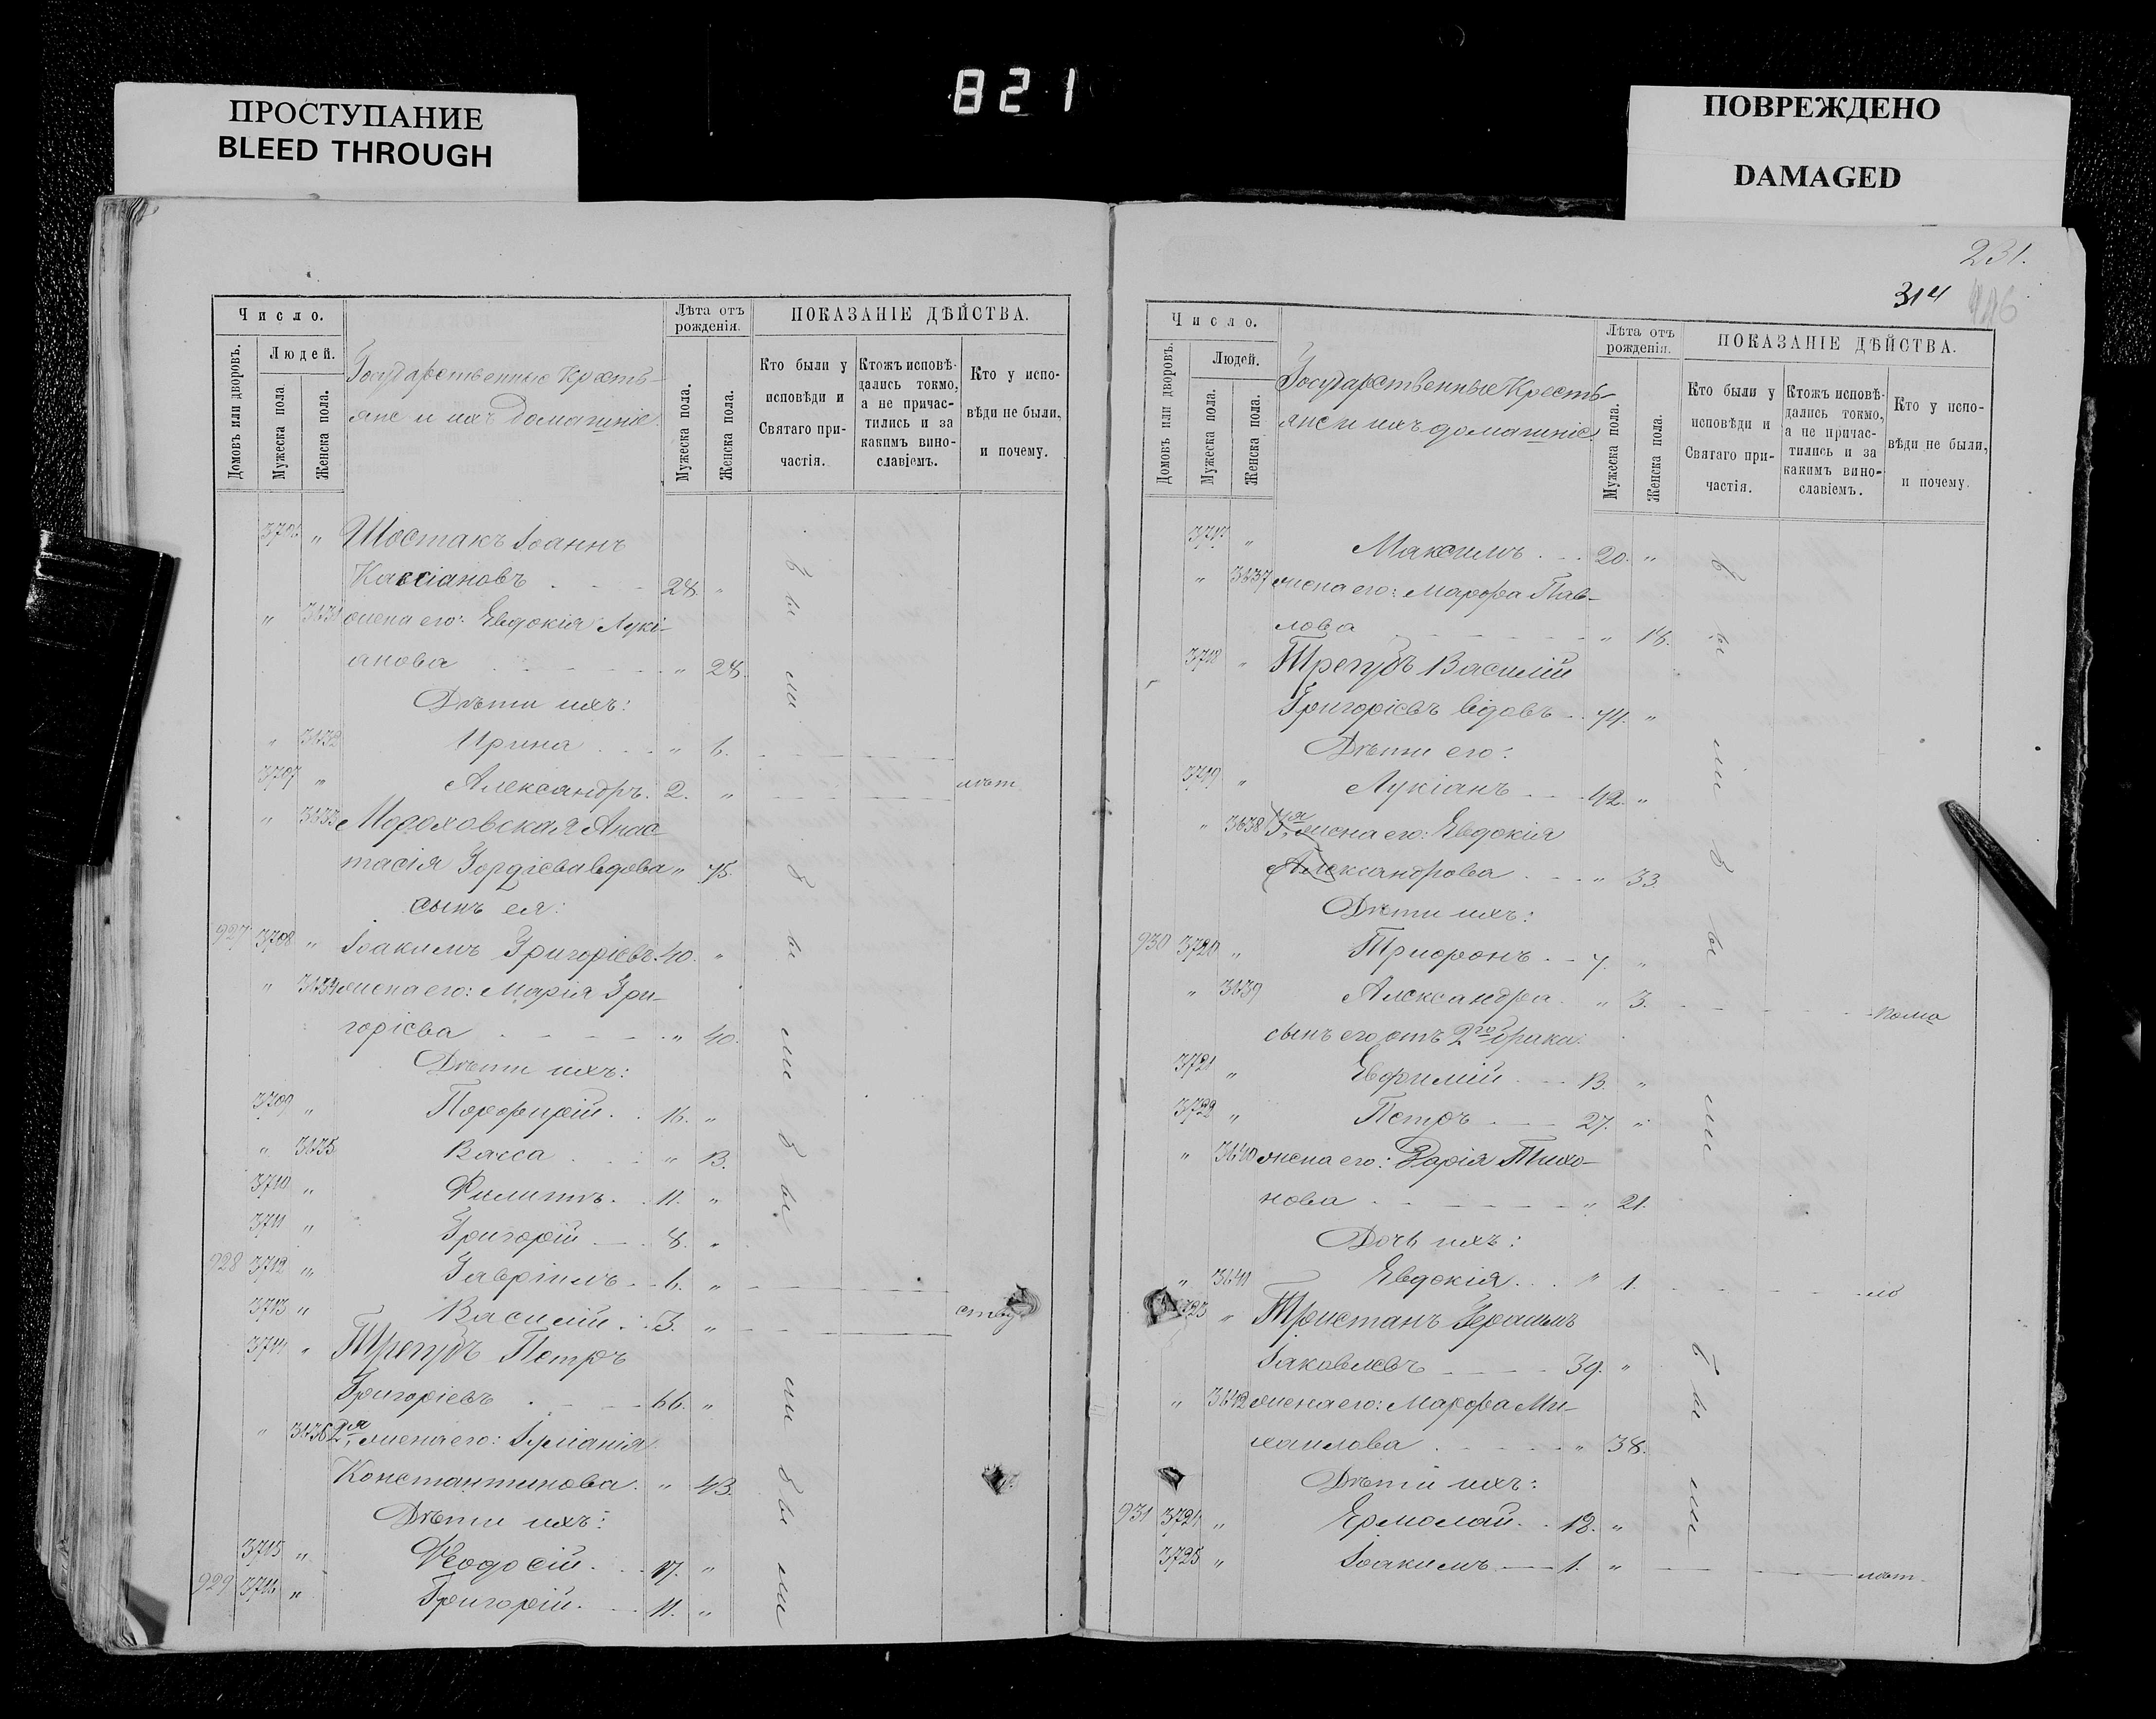 821
ПРОСТУПАНИЕ
BLEED THROUGH
ПОВРЕЖДЕНО
DAMAGED
Число.
Людей.
Домовъ или дворовъ.
Мужеска пола.
Женска пола.
Государственные Кресть-
яне и ихъ домашніе.
Лѣта отъ рожденія.
Мужеска пола.
Женска пола.
ПОКАЗАНІЕ ДѢЙСТВА.
Кто были у исповѣди и Святаго при-частія.
Ктожъ исповѣ-дались токмо, а не причас-тились и за какимъ вино-славіемъ.
Кто у испо-вѣди не были, и почему.
3706 " Шостакъ Іоаннъ
Кассіановъ 28. "
" 3631 жена его: Евдокія Лукі-
анова " 28.
Дѣти ихъ:
" 3632 Ирина " 6.
3707 " Александръ. 2. "
" 3633 Анас-
тасія Гордіева вдова " 75.
сынъ ея:
927 3708 " Іоакимъ Григоріевъ. 40. "
" 3634 жена его: Марія Гри-
горіева " 40.
Дѣти ихъ:
3709 " Порфирій. 16. "
" 3635 Васса " 13.
3710 " Филиппъ. 11. "
3711 " Григорій 8. "
928 3712 " Гавріилъ 6. "
3713 " Василій 3. "
3714 " Трегубъ Петръ
Григоріевъ 66. "
" 3636 2я, жена его:
Константинова. " 43.
Дѣти ихъ:
3715 " Ѳеодосій. 17. "
929 3716 " Григорій. 11. "
были
были
были
231.
314
Число.
Людей.
Домовъ или дворовъ.
Мужеска пола.
Женска пола.
Государственные Кресть-
яне и ихъ домашніе.
Лѣта отъ рожденія.
Мужеска пола.
Женска пола.
ПОКАЗАНІЕ ДѢЙСТВА.
Кто были у исповѣди и Святаго при-частія.
Ктожъ исповѣ-дались токмо, а не причас-тились и за какимъ вино-славіемъ.
Кто у испо-вѣди не были, и почему.
3717 " Максимъ 20. "
" 3637 жена его: Марфа Пав-
лова " 18.
3718 " Трегубъ Василій
Григоріевъ вдовъ 74. "
Дѣти его:
3719 " Лукіанъ 42. "
" 3638 3я, жена его: Евдокія
Александрова " 33.
Дѣти ихъ:
930 3720 " Трифонъ 7. "
" 3639 Александра. " 3.
сынъ его отъ 2го брака:
3721 " Евфимій 13. "
3722 " Петръ 27. "
" 3640 жена его: Дарія Тихо-
нова " 21.
Дочь ихъ:
" 3641 Евдокія. " 1.
723 " Тристанъ Герасимъ
Іаковлевъ 39. "
" 3642 жена его: Марфа Ми-
хаилова " 38.
Дѣти ихъ:
931 3724 " Ермолай. 12. "
3725 " Іоакимъ 1. "
были
были
были